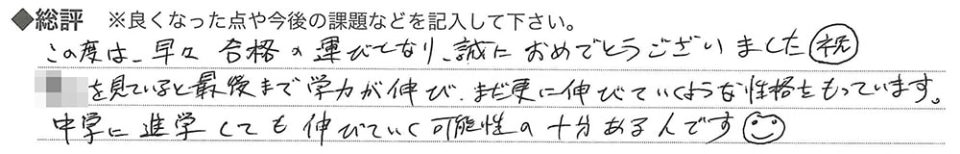 ◆総評 ※良くなった点や今後の課題などを記入して下さい。
この度は、早々 合格の運びとなり、誠に おめでとうございました㊗
を見ていると最後まで学力が伸び、まだ更に伸びていくような性格をもっています。
中学に進学しても伸びていく可能性の十分ある人です